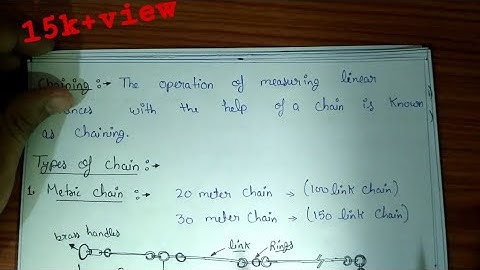 15k+view
Chaining :→ The operation of measuring linear
with the help of a chain is known
as chaining.
Types of chain :→
1. Metric chain :→ 20 meter chain → (100 link chain)
30 meter chain → (150 link chain)
brass handles
link Rings